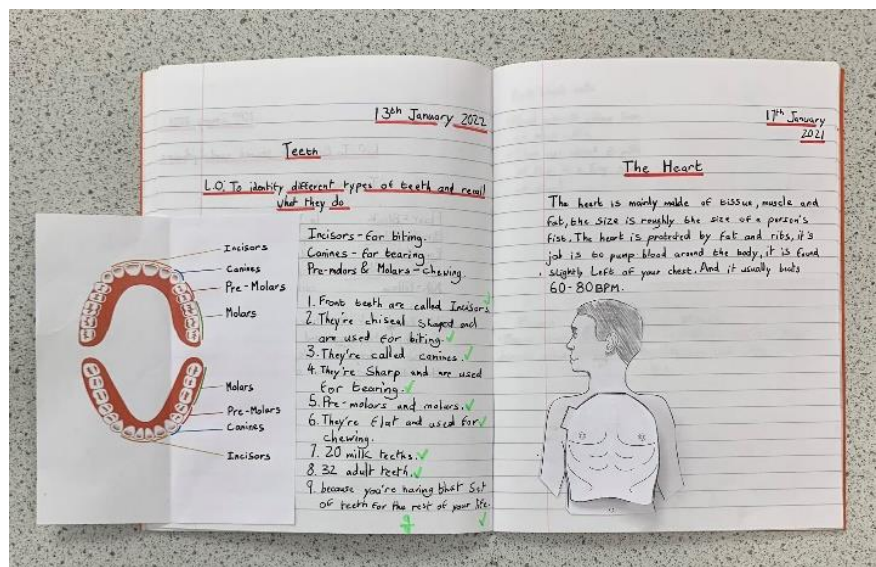 13th January 2022
Teeth
L.O. To identify different types of teeth and recall
what they do
Incisors
Canines
Pre-Molars
Molars
Molars
Pre-Molars
Canines
Incisors
Incisors - for biting.
Canines - for tearing
Pre-molars & Molars - chewing.
1. Front teeth are called Incisors
2. They're chiseal shaped and
are used for biting.
3. They're called canines.
4. They're Sharp and are used
for tearing.
5. Pre-molars and molars.
6. They're flat and used for
chewing.
7. 20 milk teeths.
8. 32 adult teeth.
9. because you're having that Set
of teeth for the rest of your life.
9
17th January
2021
The Heart
The heart is mainly made of tissue, muscle and
fat, the size is roughly the size of a person's
fist. The heart is protected by fat and ribs, it's
job is to pump blood around the body, it is found
slightly Left of your chest. And it usually beats
60-80 BPM.